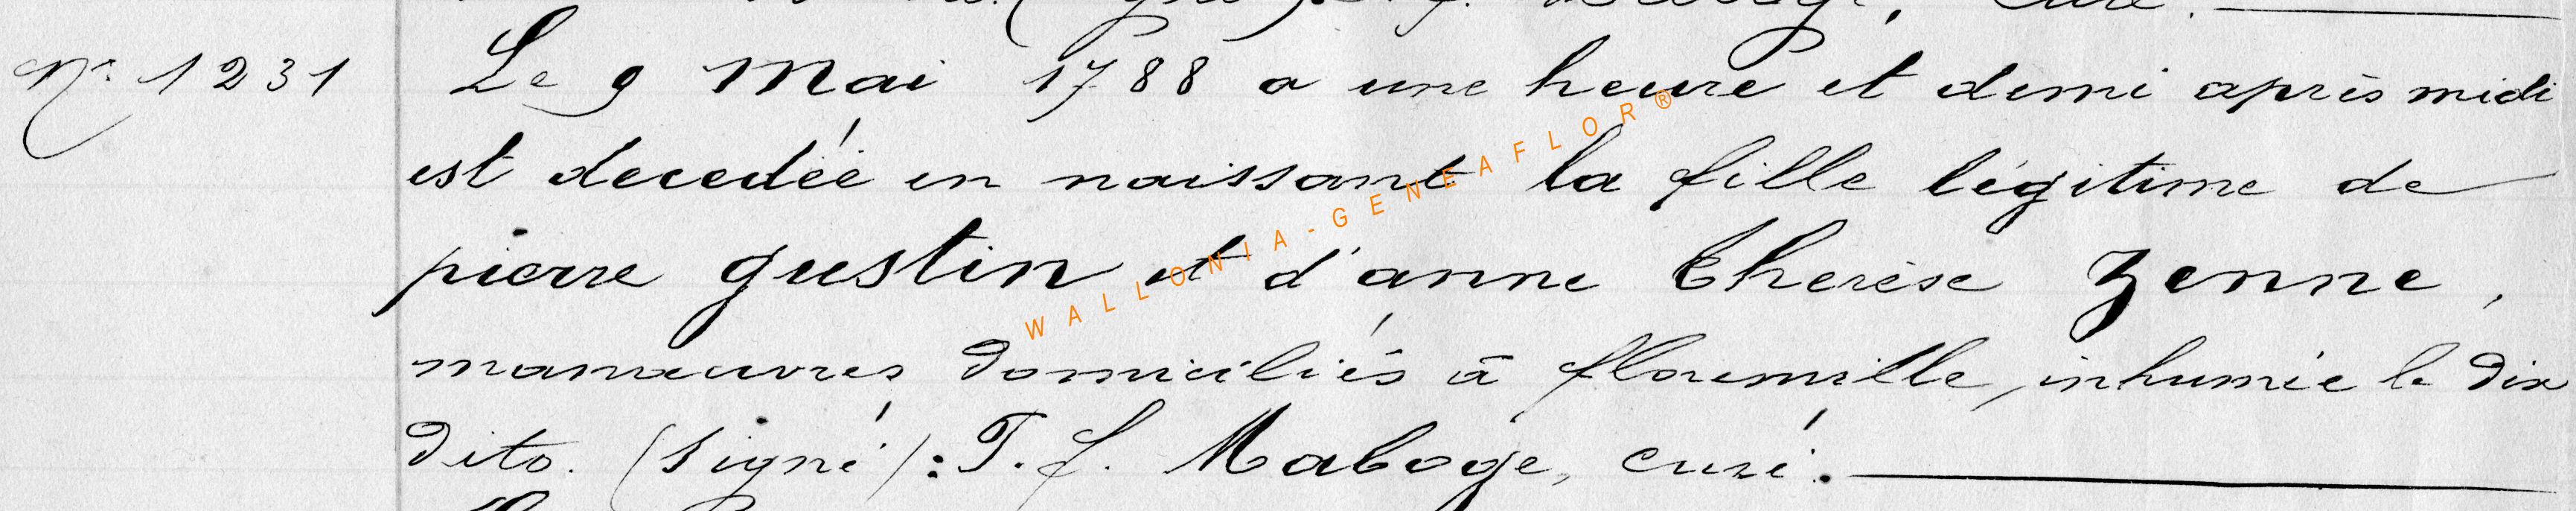 N° 1231 Le 9 Mai 1788 a une heure et demi après midi
est decedéé en naissant la fille légitime de
pierre gustin et d'anne therèse Zenne,
manœuvres domiciliés à florenville, inhumée le dix
dito. (signé): T. f. Maboge, curé.
WALLONIA-GENEAFLOR®